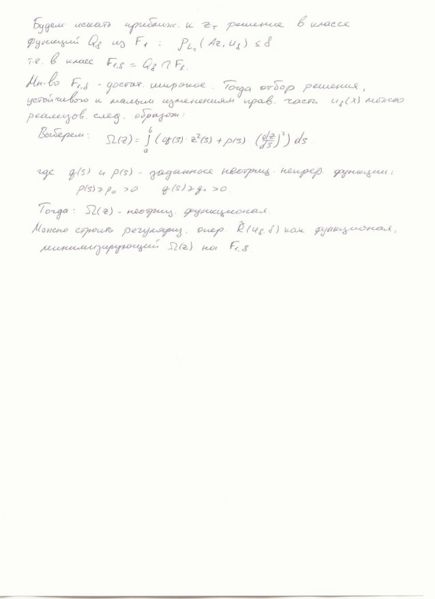 Будем искать приближ. к z_T решение в классе
функций Q_δ из F_1 : ρ_{L_2}(Az, u_δ) ≤ δ
т.е. в классе F_{1,δ} = Q_δ ∩ F_1.
Мн-во F_{1,δ} - достат. широкое. Тогда отбор решения,
устойчивого к малым изменениям прав. части u_δ(x) можно
реализов. след. образом:
Выберем: Ω(z) = ∫_a^b (q(s) z²(s) + p(s) (dz/ds)²) ds
где q(s) и p(s) - заданные неотриц. непрер. функции:
p(s) ≥ p_0 > 0 q(s) ≥ q_0 > 0
Тогда: Ω(z) - неотриц. функционал
Можно строить регуляриз. опер. R̃(u_δ, δ) как функционал,
минимизирующий Ω(z) на F_{1,δ}